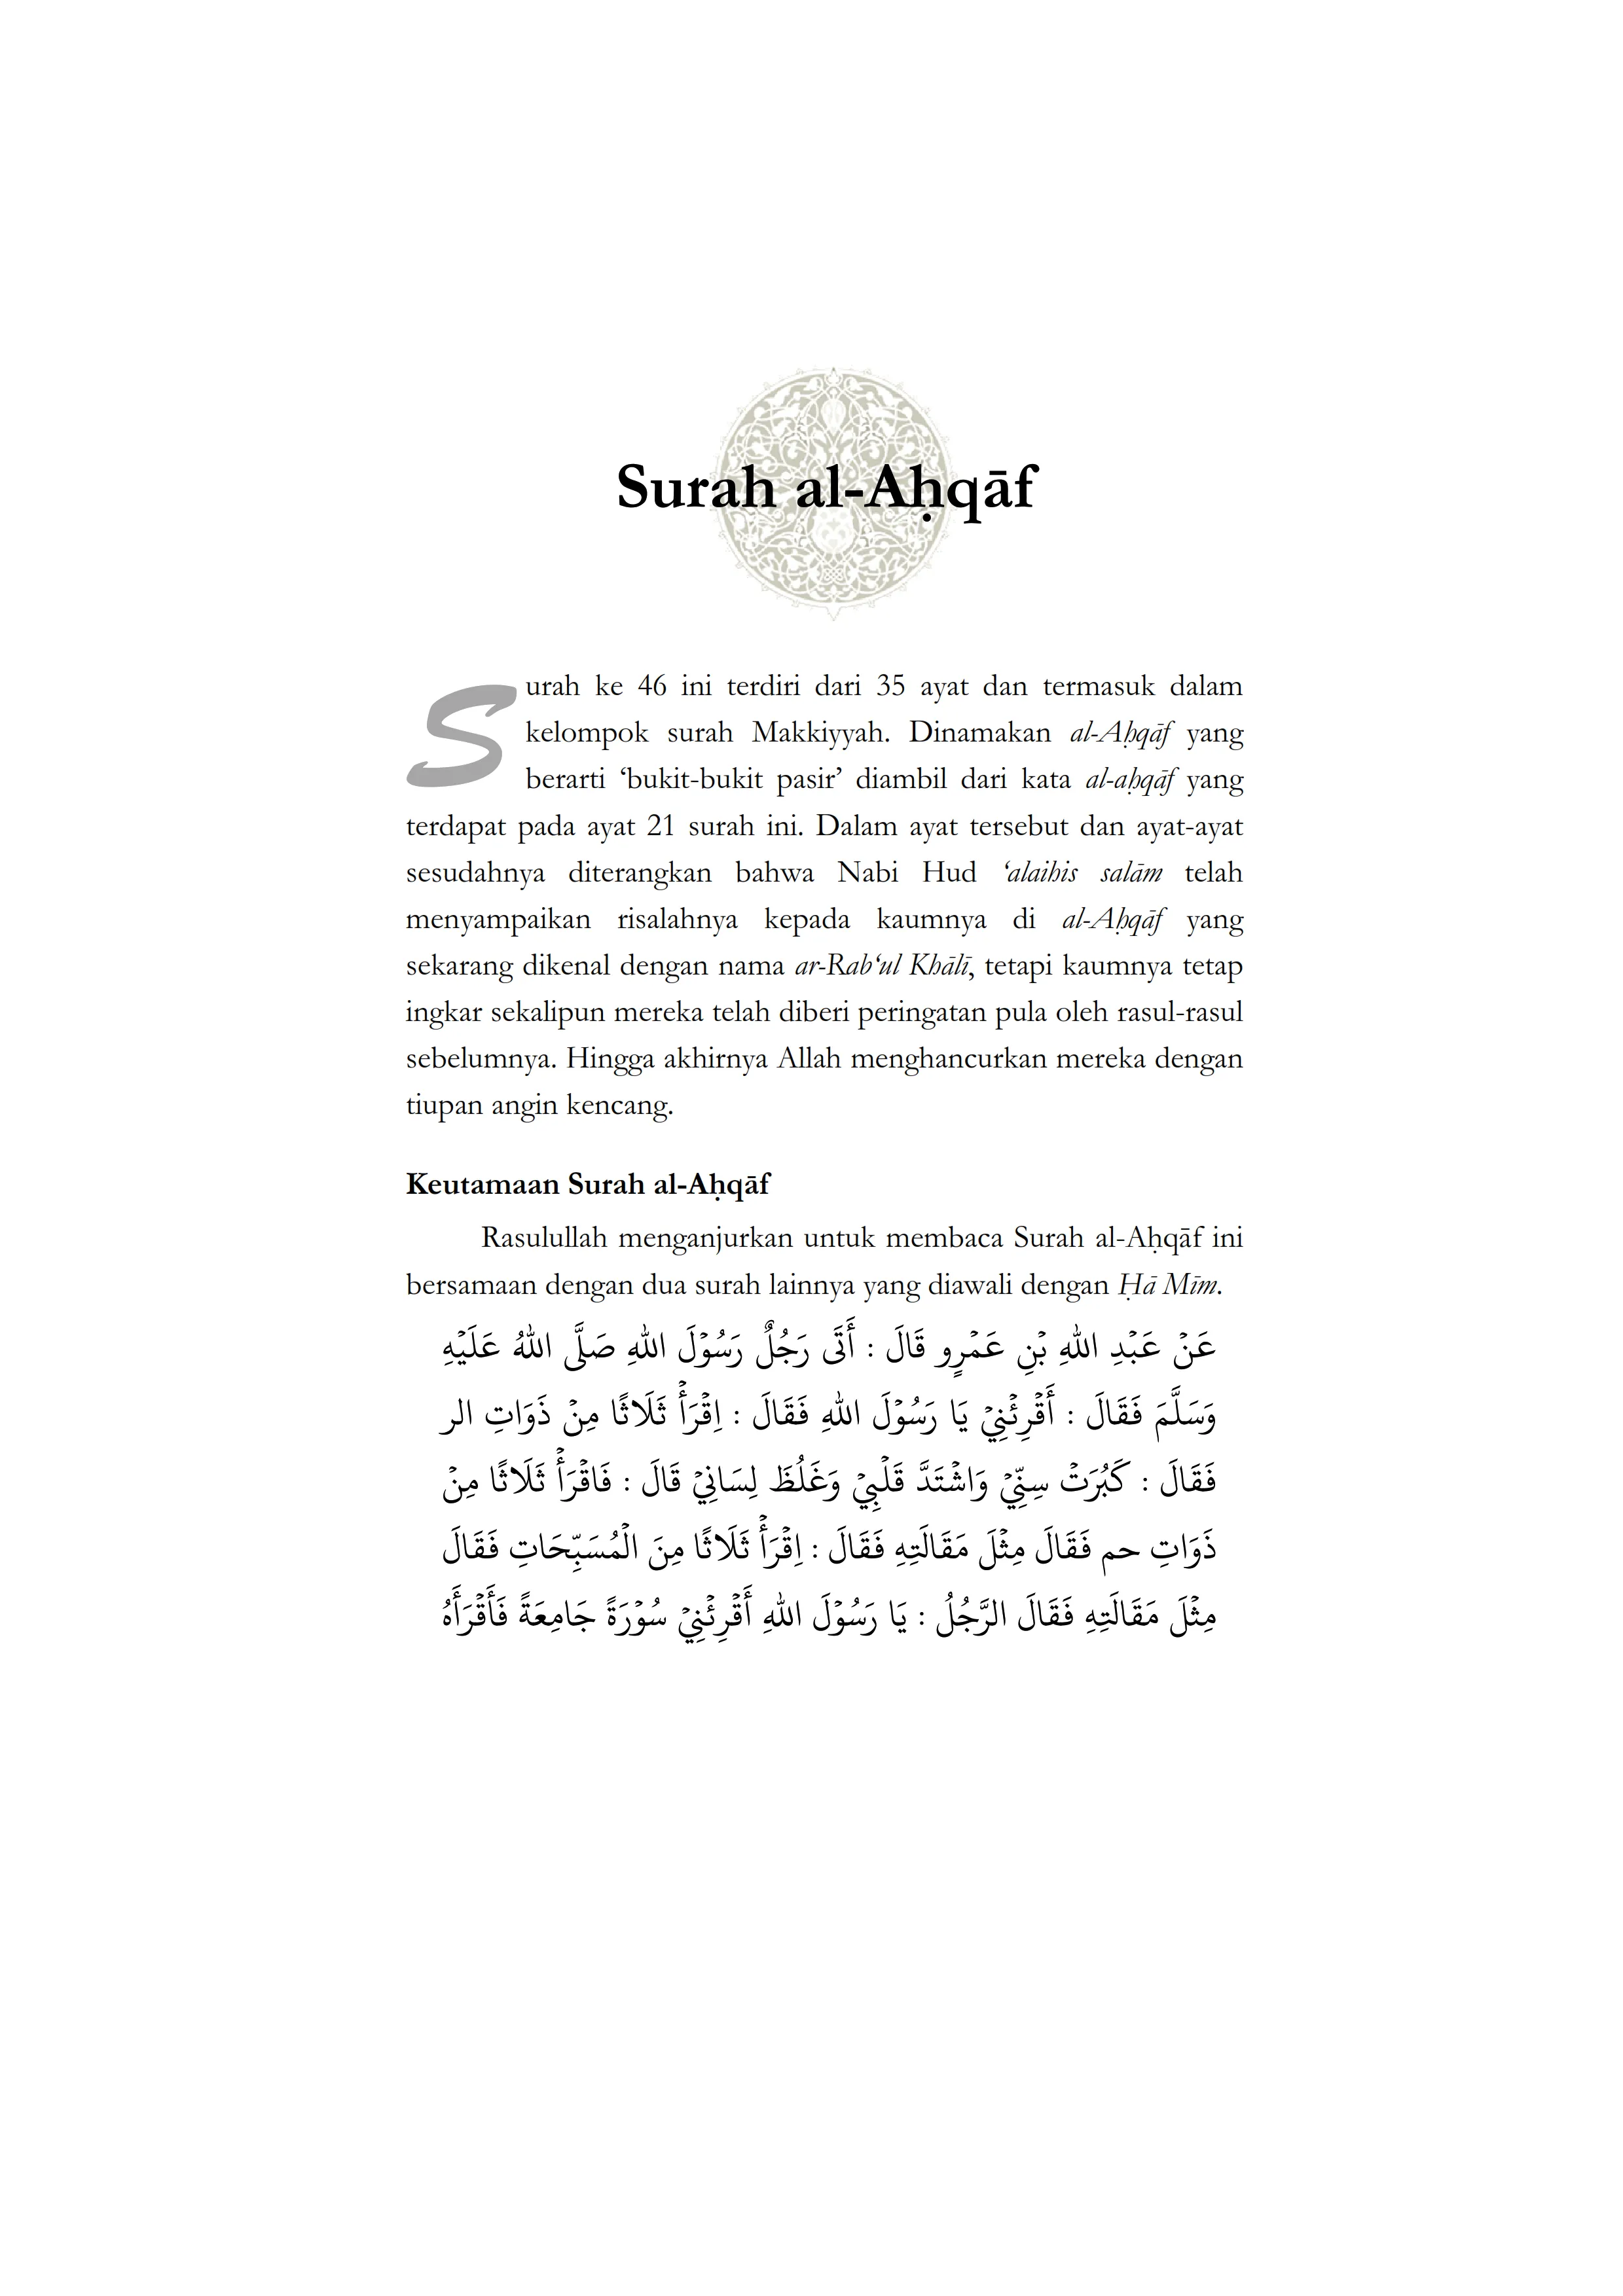 Surah al-Aḥqāf
Surah ke 46 ini terdiri dari 35 ayat dan termasuk dalam
kelompok surah Makkiyyah. Dinamakan al-Aḥqāf yang
berarti ‘bukit-bukit pasir’ diambil dari kata al-aḥqāf yang
terdapat pada ayat 21 surah ini. Dalam ayat tersebut dan ayat-ayat
sesudahnya diterangkan bahwa Nabi Hud ‘alaihis salām telah
menyampaikan risalahnya kepada kaumnya di al-Aḥqāf yang
sekarang dikenal dengan nama ar-Rab‘ul Khālī, tetapi kaumnya tetap
ingkar sekalipun mereka telah diberi peringatan pula oleh rasul-rasul
sebelumnya. Hingga akhirnya Allah menghancurkan mereka dengan
tiupan angin kencang.
Keutamaan Surah al-Aḥqāf
Rasulullah menganjurkan untuk membaca Surah al-Aḥqāf ini
bersamaan dengan dua surah lainnya yang diawali dengan Ḥā Mīm.
عَنْ عَبْدِ اللهِ بْنِ عَمْرٍو قَالَ : أَتَى رَجُلٌ رَسُوْلَ اللهِ صَلَّى اللهُ عَلَيْهِ
وَسَلَّمَ فَقَالَ : أَقْرِئْنِيْ يَا رَسُوْلَ اللهِ فَقَالَ : اِقْرَأْ ثَلَاثًا مِنْ ذَوَاتِ الر
فَقَالَ : كَبُرَتْ سِنِّيْ وَاشْتَدَّ قَلْبِيْ وَغَلُظَ لِسَانِيْ قَالَ : فَاقْرَأْ ثَلَاثًا مِنْ
ذَوَاتِ حم فَقَالَ مِثْلَ مَقَالَتِهِ فَقَالَ : اِقْرَأْ ثَلَاثًا مِنَ الْمُسَبِّحَاتِ فَقَالَ
مِثْلَ مَقَالَتِهِ فَقَالَ الرَّجُلُ : يَا رَسُوْلَ اللهِ أَقْرِئْنِيْ سُوْرَةً جَامِعَةً فَأَقْرَأَهُ